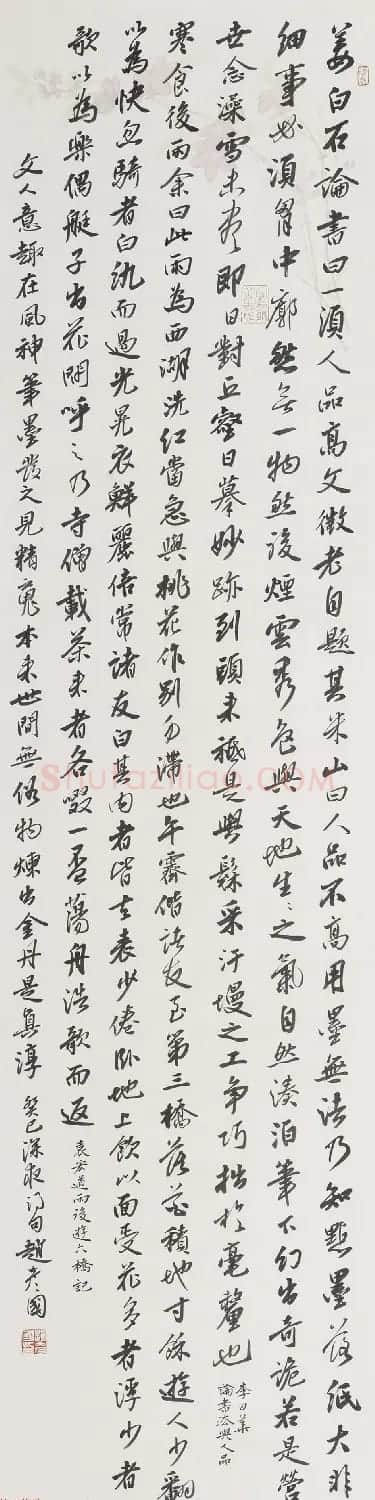 姜白石論書曰一須人品高文徵老自題其米山曰人品不高用墨無法乃知點墨落紙大非
細事必須胷中廓然無一物然後煙雲秀色與天地生々之氣自然湊泊筆下幻出奇詭若是營
世念澡雪未盡即日對丘壑日摹妙跡到頭來祗是與髹采汙墁之工爭巧拙於毫釐也
李日華
論書法與人品
寒食後雨余曰此雨為西湖洗紅當急與桃花作別勿滯也午霽偕諸友至第三橋落花積地寸餘遊人少翻
以為快忽騎者白紈而過光晃衣鮮麗倍常諸友白其内者皆去表少倦臥地上飲以面受花多者浮少者
歌以為樂偶艇子出花間呼之乃寺僧載茶來者各啜一盃蕩舟浩歌而返
袁宏道雨後遊六橋記
文人意趣在風神筆墨發之見精魂本來世間無俗物煉出金丹是真淳
癸巳深秋 趙彥國
Shufaziliao.COM